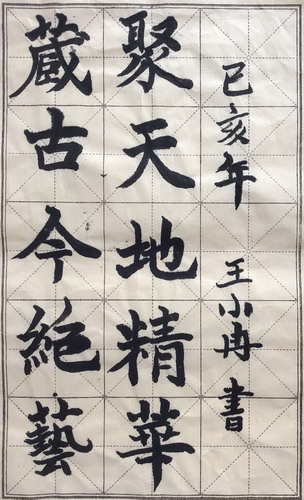 蔵古今絶藝
聚天地精華
己亥年 王小冉 書